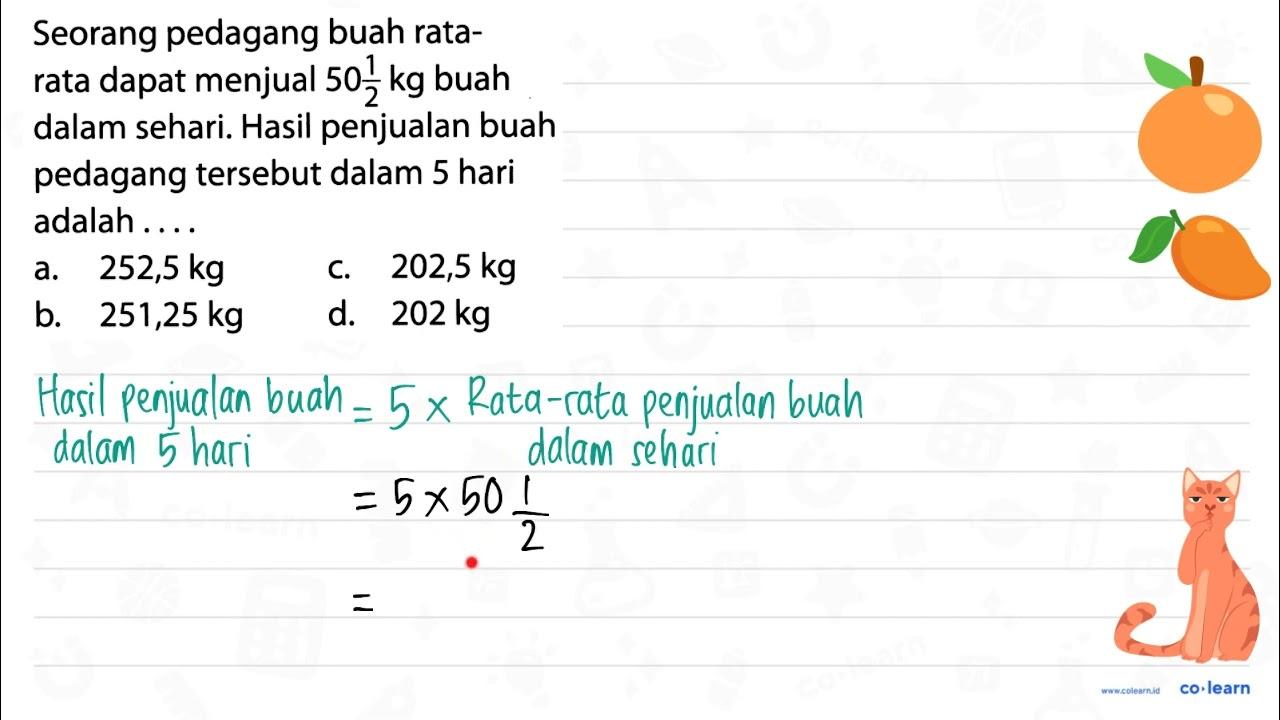 Seorang pedagang buah rata-
rata dapat menjual 50 1/2 kg buah
dalam sehari. Hasil penjualan buah
pedagang tersebut dalam 5 hari
adalah . . . .
a. 252,5 kg c. 202,5 kg
b. 251,25 kg d. 202 kg
Hasil penjualan buah = 5 × Rata-rata penjualan buah
dalam 5 hari dalam sehari
= 5 × 50 1/2
=
www.colearn.id co·learn